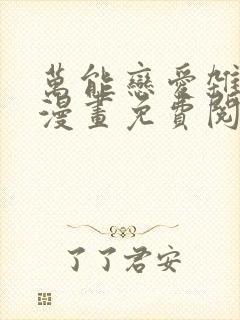 萬能戀愛雜
漫畫免費閱
了了君安